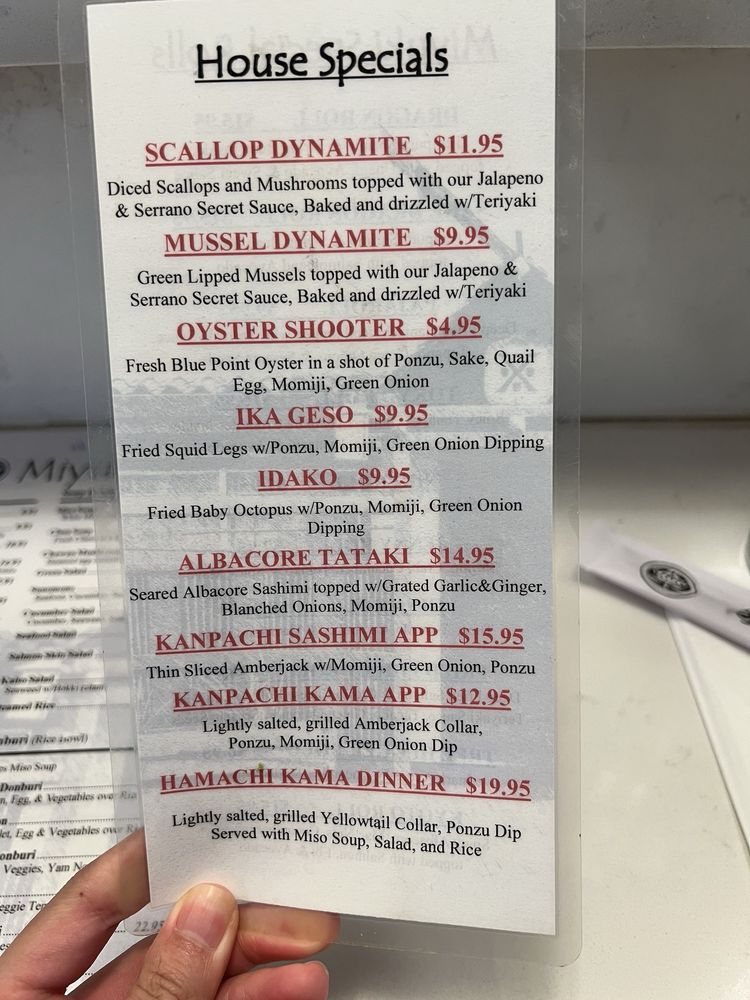 House Specials
SCALLOP DYNAMITE $11.95
Diced Scallops and Mushrooms topped with our Jalapeno
& Serrano Secret Sauce, Baked and drizzled w/Teriyaki
MUSSEL DYNAMITE $9.95
Green Lipped Mussels topped with our Jalapeno &
Serrano Secret Sauce, Baked and drizzled w/Teriyaki
OYSTER SHOOTER $4.95
Fresh Blue Point Oyster in a shot of Ponzu, Sake, Quail
Egg, Momiji, Green Onion
IKA GESO $9.95
Fried Squid Legs w/Ponzu, Momiji, Green Onion Dipping
IDAKO $9.95
Fried Baby Octopus w/Ponzu, Momiji, Green Onion
Dipping
ALBACORE TATAKI $14.95
Seared Albacore Sashimi topped w/Grated Garlic&Ginger,
Blanched Onions, Momiji, Ponzu
KANPACHI SASHIMI APP $15.95
Thin Sliced Amberjack w/Momiji, Green Onion, Ponzu
KANPACHI KAMA APP $12.95
Lightly salted, grilled Amberjack Collar,
Ponzu, Momiji, Green Onion Dip
HAMACHI KAMA DINNER $19.95
Lightly salted, grilled Yellowtail Collar, Ponzu Dip
Served with Miso Soup, Salad, and Rice
Cucumber Salad
Seafood Salad
Salmon Skin Salad
Kaiso Salad
(Rice bowl)
Miso Soup
Donburi
Egg, & Vegetables over
Egg & Vegetables over
Veggies, Yam
22.95